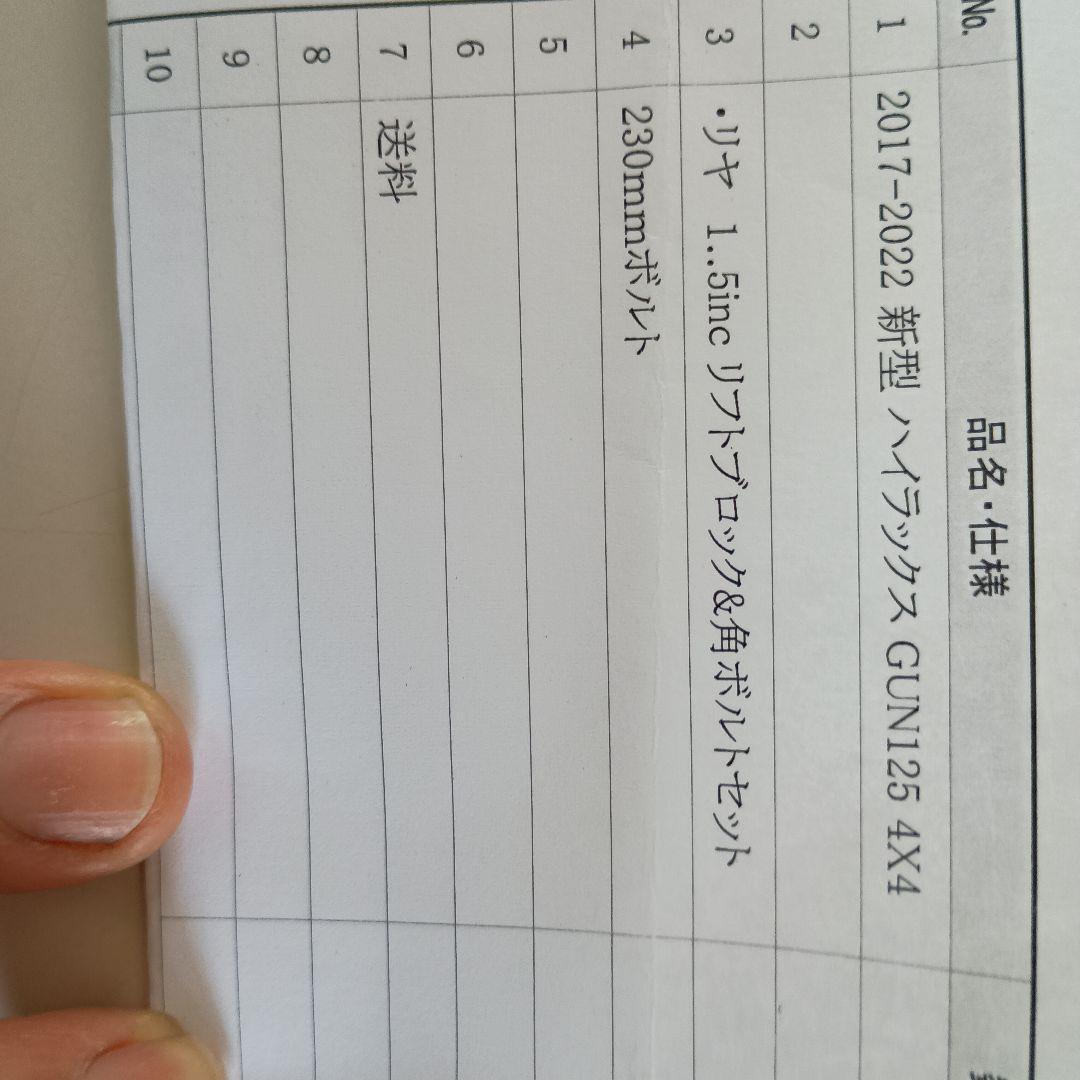 No. 品名・仕様
1 2017-2022 新型 ハイラックス GUN125 4X4
2
3 ・リヤ 1..5inc リフトブロック&角ボルトセット
4 230mmボルト
5
6
7 送料
8
9
10